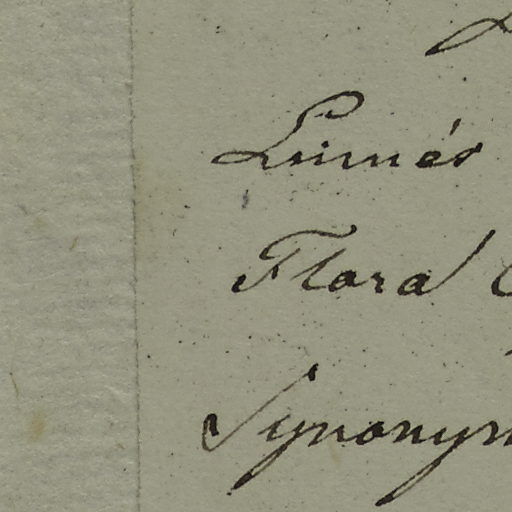 Linnés
Flora
Synonym